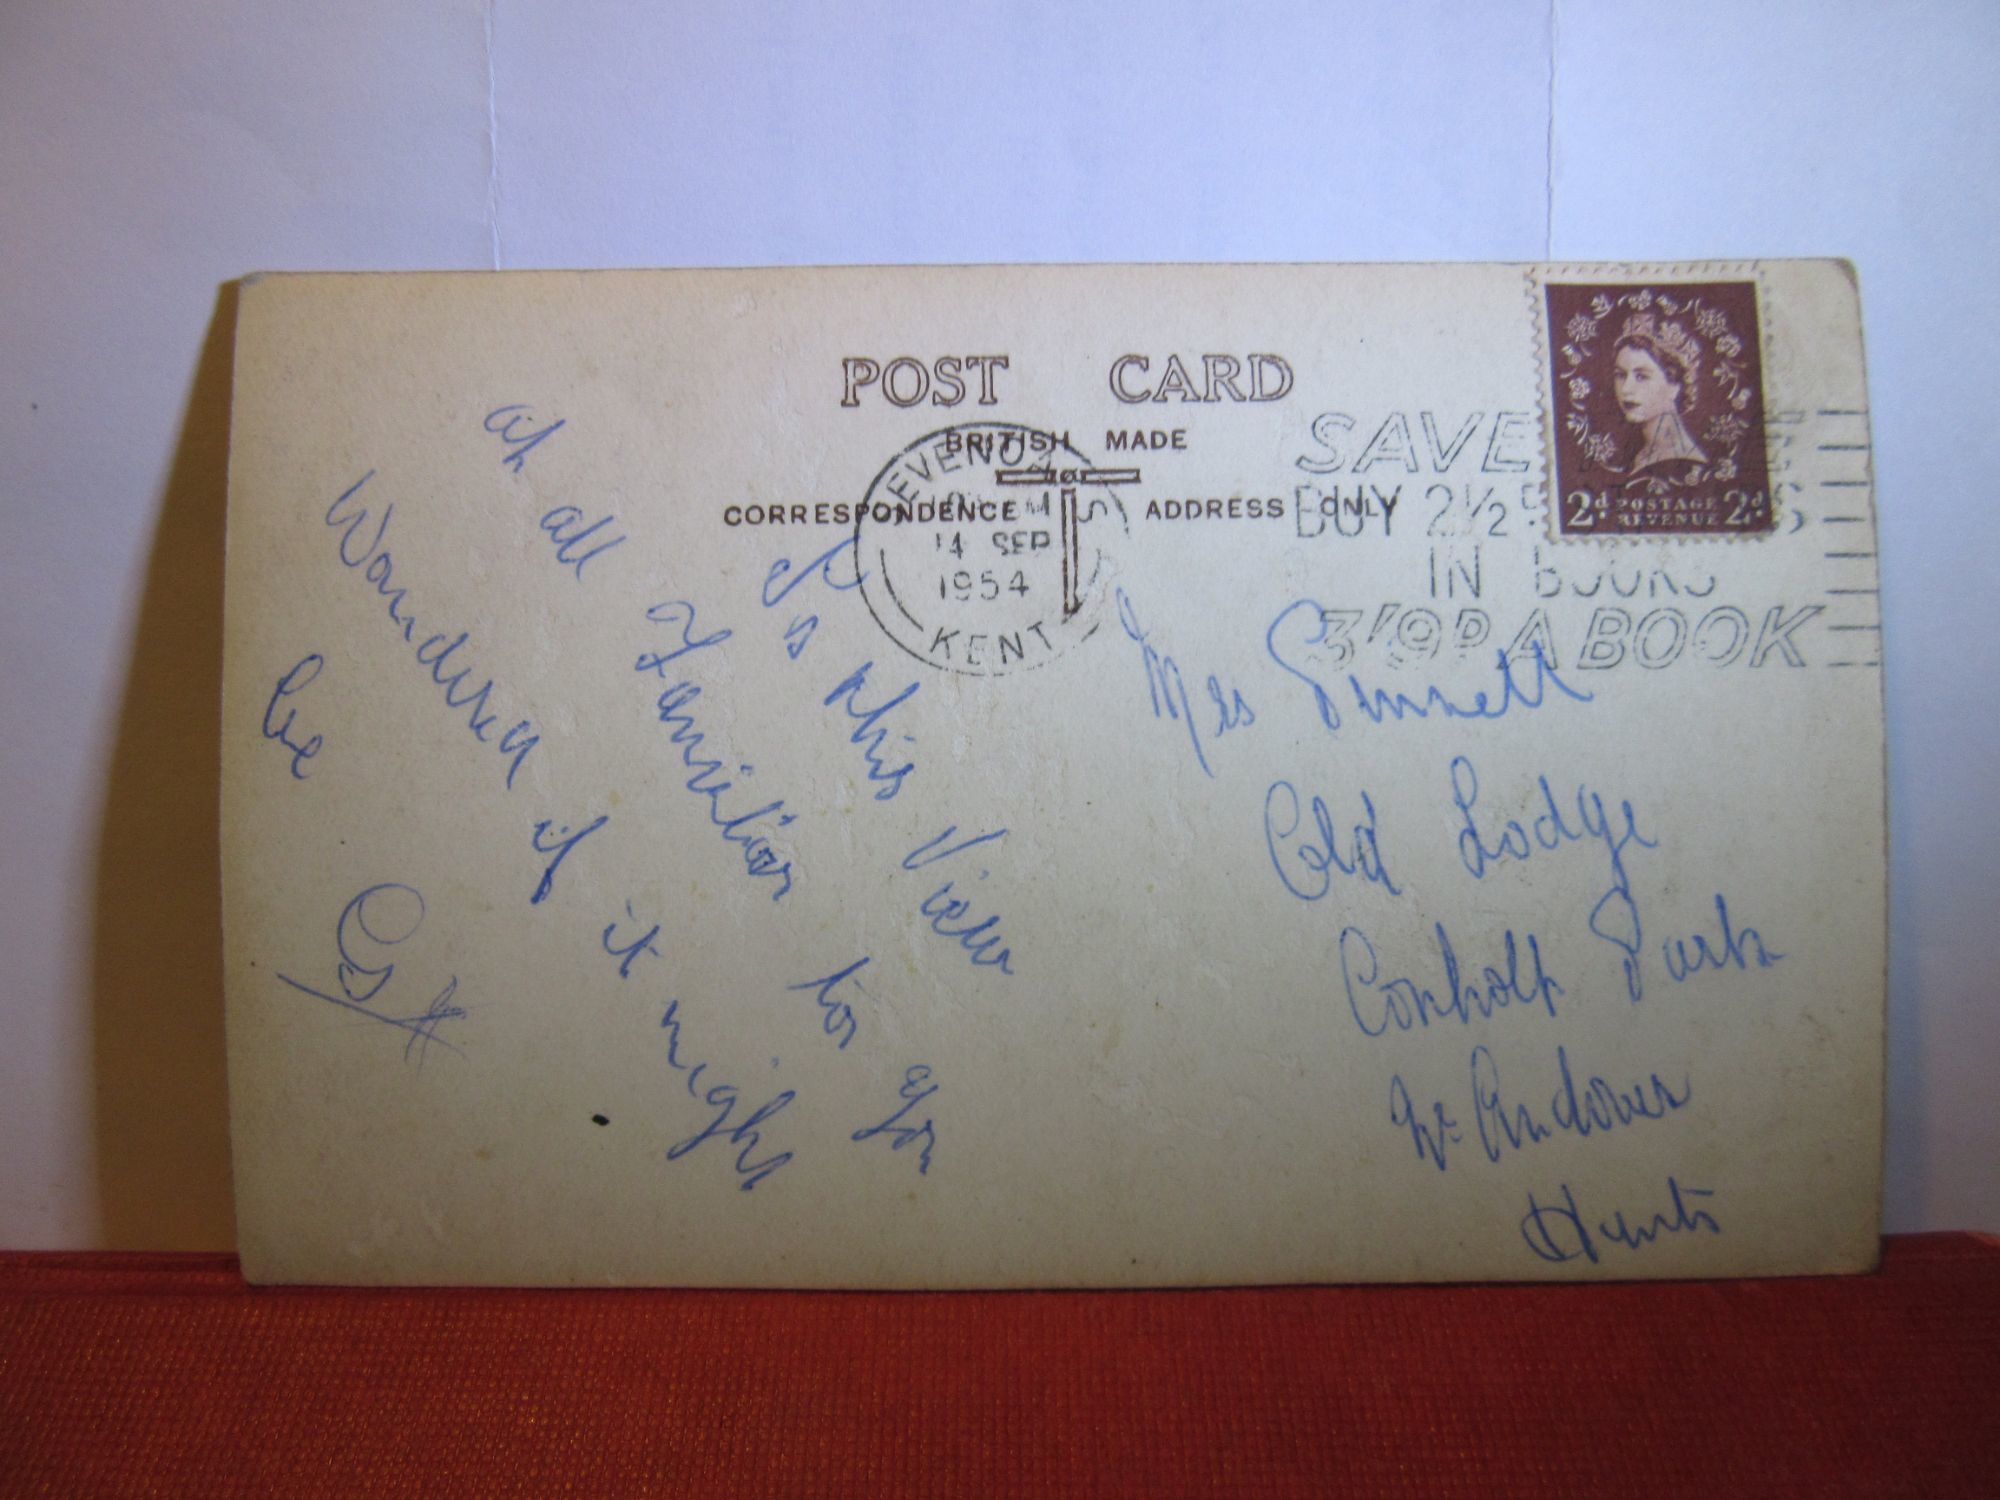 POST CARD
BRITISH MADE
CORRESPONDENCE ADDRESS ONLY
SEVENOAKS
14 SEP
1954
KENT
SAVE
BUY 2½
IN BOOKS
3/9D A BOOK
2d. POSTAGE REVENUE 2d.
Is this View
at all Familiar to you
Wondered if it might
be
Mrs
Cold Lodge
Conholt Park
Nr Andover
Hants